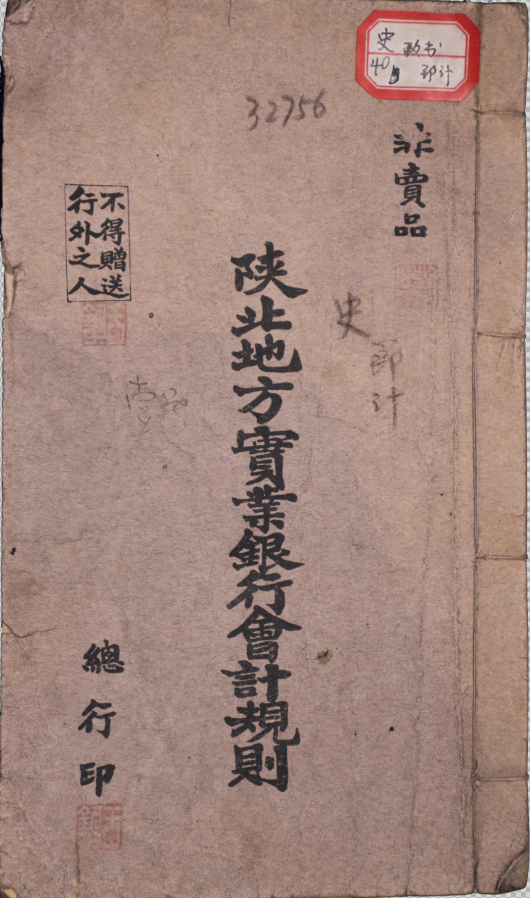 史 政书
40 邵计
32756
非賣品
不得贈送
行外之人
陝北地方實業銀行會計規則
史
邵计
總行印